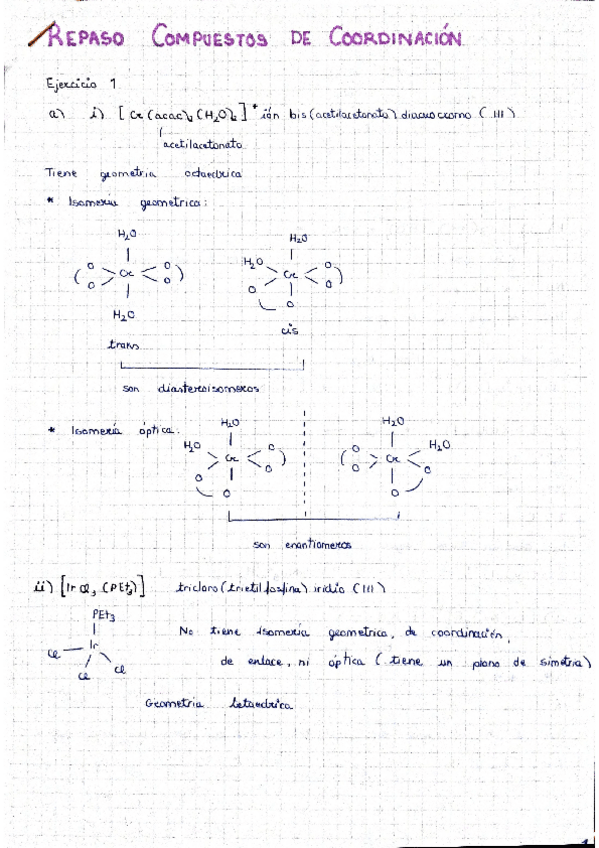 REPASO COMPUESTOS DE COORDINACIÓN
Ejercicio 1
a) i) [Cr(acac)₂(H₂O)₂]⁺ ión bis(acetilacetonato)diacuocromo (III)
acetilacetonato
Tiene geometría octaédrica
* Isomería geometrica:
H₂O H₂O
O Cr O H₂O Cr O
O O O O
H₂O O
trans cis
son diastereoisomeros
* Isomería óptica:
H₂O H₂O
H₂O Cr O O Cr H₂O
O O O O
O O
son enantiomeros
ii) [IrCl₃(PEt₃)] tricloro(trietilfosfina)iridio (III)
PEt₃
Ir
Cl Cl
Cl
No tiene isomería geometrica, de coordinación,
de enlace, ni óptica (tiene un plano de simetria)
Geometria tetaedrica
1